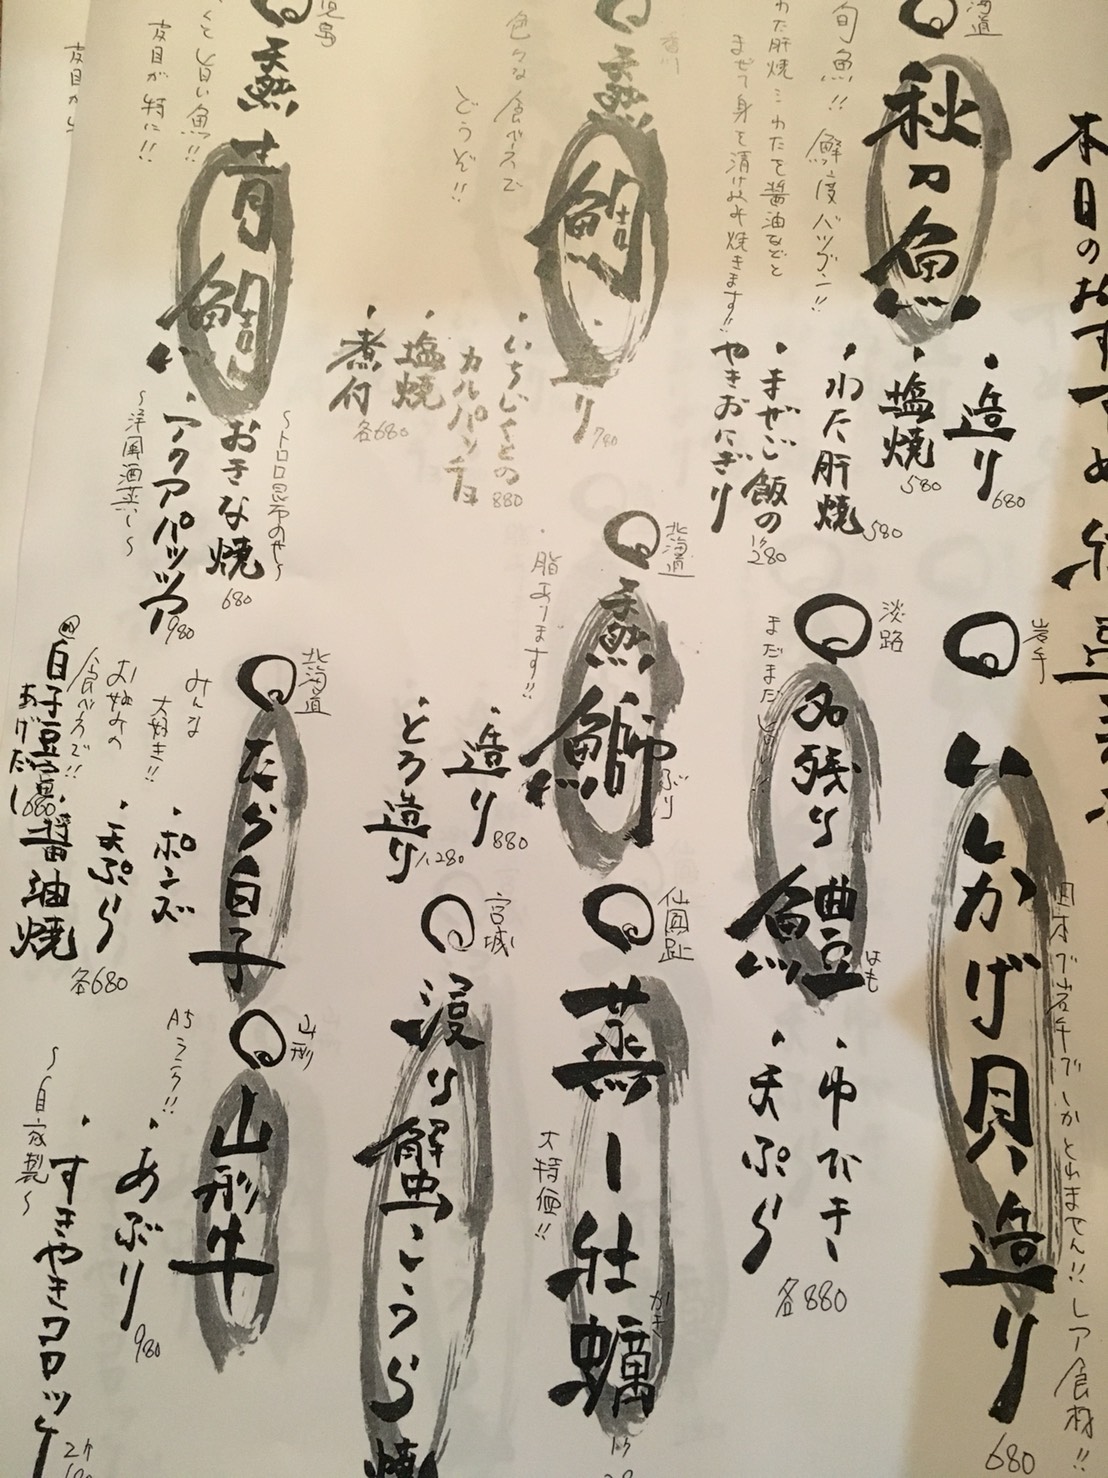 本日のおすすめ
北海道
秋刀魚
旬魚!! 鮮度バツグン!!
わた肝焼:わたを醤油などと
まぜて身を漬け込み焼きます!!
・造り 680
・塩焼 580
・わた肝焼 580
・まぜご飯の
やきおにぎり 1ヶ280
香川
天然鯛
色々な食べ方で
どうぞ!!
造り 780
・いちじくとの
カルパッチョ 880
・塩焼
・煮付
各680
天然青鯛
とても旨い魚!!
皮目が特に!!
おきな焼 680
~トロロ昆布のせ~
・アクアパッツァ 980
~洋風酒蒸し~
皮目から
岩手
いしかげ貝造り
日本で岩手でしかとれません!! レア食材!!
680
淡路
名残り鱧
はも
まだまだ
・ゆびき
・天ぷら
各880
北海道
天然鰤
ぶり
脂あります!!
・造り 880
・とろ造り 1,280
仙鳳趾
蒸し牡蠣
かき
大特価!!
1ケ
宮城
渡り蟹こうら焼
北海道
たら白子
みんな
大好き!!
お好みの
食べ方で!!
・ポン酢
・天ぷら
・醤油焼
各680
白子豆富
あげだし 680
山形
山形牛
A5ランク!!
・あぶり 980
・すきやきコロッケ
~自家製~
2ケ